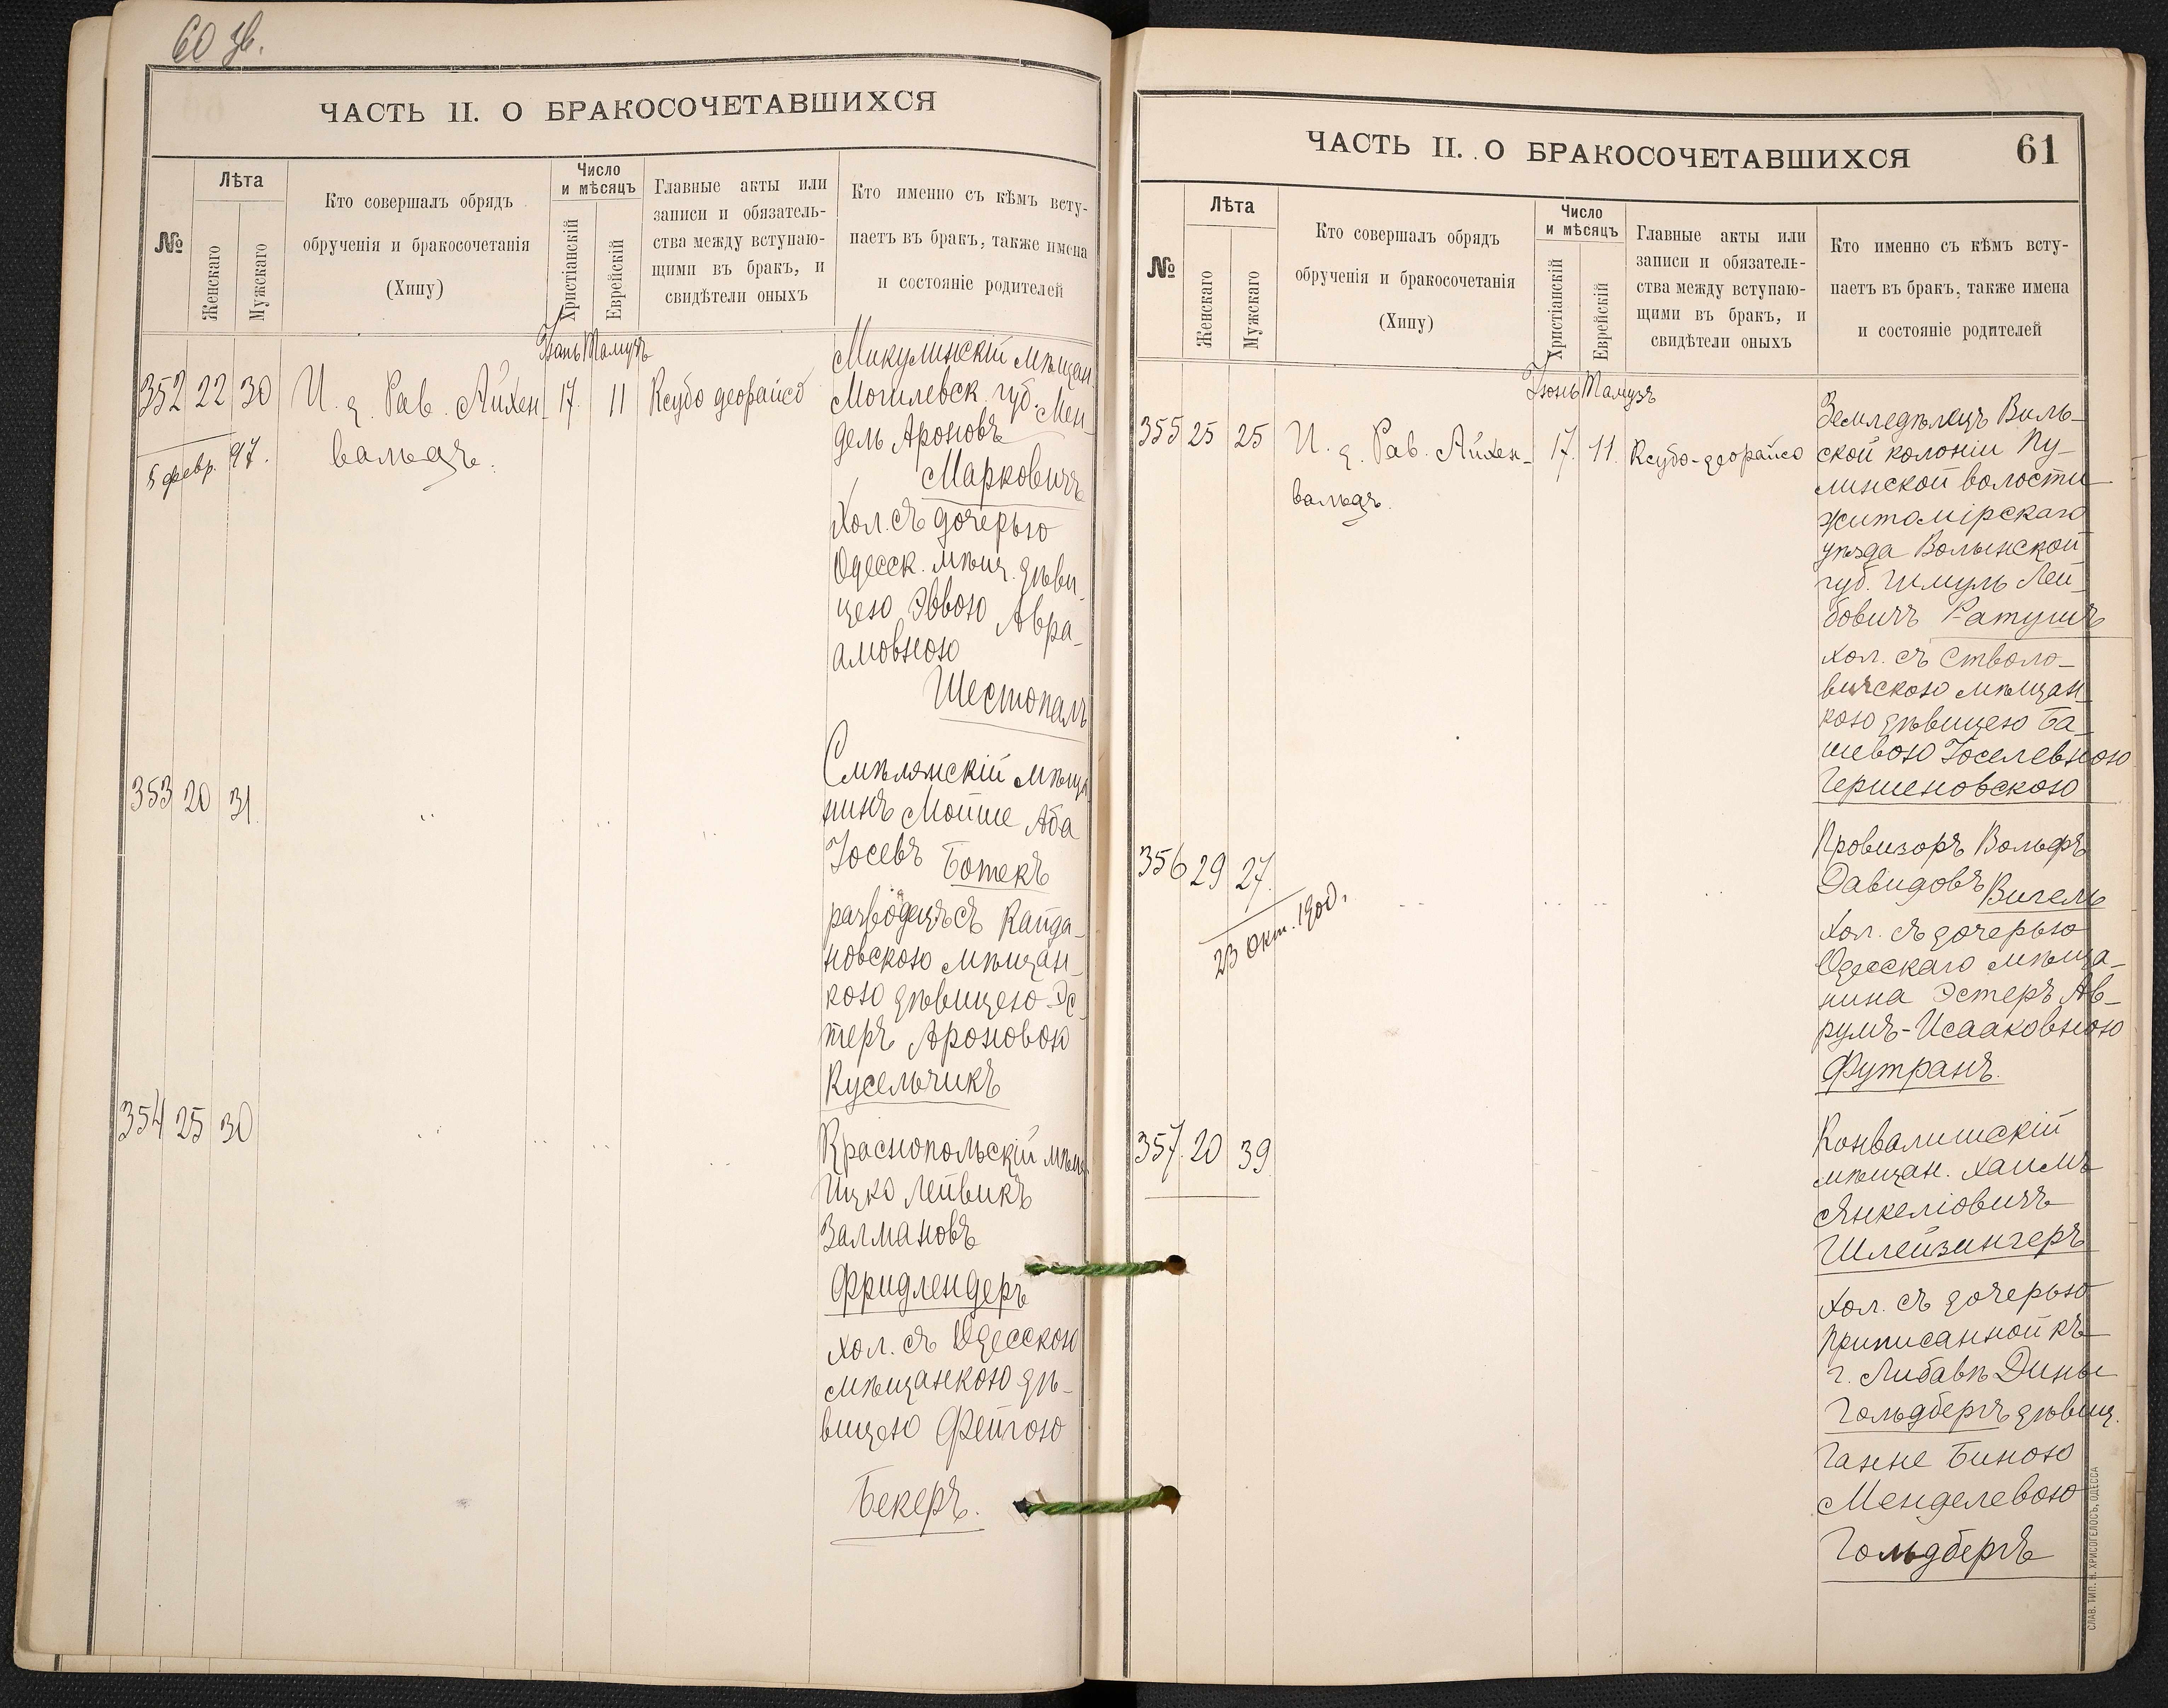 60 зв.
ЧАСТЬ II. О БРАКОСОЧЕТАВШИХСЯ
№
Лѣта
Женскаго
Мужскаго
Кто совершалъ обрядъ
обрученія и бракосочетанія
(Хипу)
Число
и мѣсяцъ
Христіанскій
Еврейскій
Главные акты или
записи и обязатель-
ства между вступаю-
щими въ бракъ, и
свидѣтели оныхъ
Кто именно съ кѣмъ всту-
паетъ въ бракъ, также имена
и состояніе родителей
Іюнь Тамузъ
352 22 30 И. д. Рав. Айхен- 17. 11 Ксубо деорайсо
вальдъ.
5 февр. 97.
Микулинскій мѣщан.
Могилевск. губ. Мен-
дель Ароновъ
Марковичъ
Хол. съ дочерью
Одесск. мѣщ. дѣви-
цею Эввою Авра-
амовною
Шестопалъ
353 20 31.
Смѣлянскій мѣща
нинъ Мойше Аба
Іосевъ Ботекъ
разводецъ съ Кайда-
новскою мѣщан-
кою дѣвицею Эс-
теръ Ароновою
Кусельчикъ
354 25 30
Краснопольскій мѣщ.
Ицко Лейвикъ
Залмановъ
Фридлендеръ
хол. съ Одесскою
мѣщанкою дѣ-
вицею Фейгою
Бекеръ.
ЧАСТЬ II. О БРАКОСОЧЕТАВШИХСЯ
61
№
Лѣта
Женскаго
Мужскаго
Кто совершалъ обрядъ
обрученія и бракосочетанія
(Хипу)
Число
и мѣсяцъ
Христіанскій
Еврейскій
Главные акты или
записи и обязатель-
ства между вступаю-
щими въ бракъ, и
свидѣтели оныхъ
Кто именно съ кѣмъ всту-
паетъ въ бракъ, также имена
и состояніе родителей
Іюнь Тамузъ
355 25 25 И. д. Рав. Айхен- 17. 11. Ксубо-деорайсо
вальдъ.
Земледѣлецъ Виль-
ской колоніи Пу-
линской волости
Житомірскаго
уѣзда Волынской
губ. Шмуль Лей-
бовичъ Ратушъ
хол. съ Стволо-
вичскою мѣщан-
кою дѣвицею Ба-
шевою Іоселевною
Гершеновскою
356 29 27.
23 Окт. 1900.
Провизоръ Вольфъ
Давидовъ Вигель
хол. съ дочерью
Одесскаго мѣща-
нина Эстеръ Ав-
румъ-Исааковною
Футранъ.
357. 20 39
Конвалишскій
мѣщан. Хаимъ
Янкеліовичъ
Шлейзингеръ
хол. съ дочерью
приписанной къ
г. Либавѣ Дины
Гольдбергъ дѣвиц.
Ганне Биною
Менделевою
Гольдбергъ
СЛАВ. ТИП. Н. ХРИСОГЕЛОСЪ, ОДЕССА